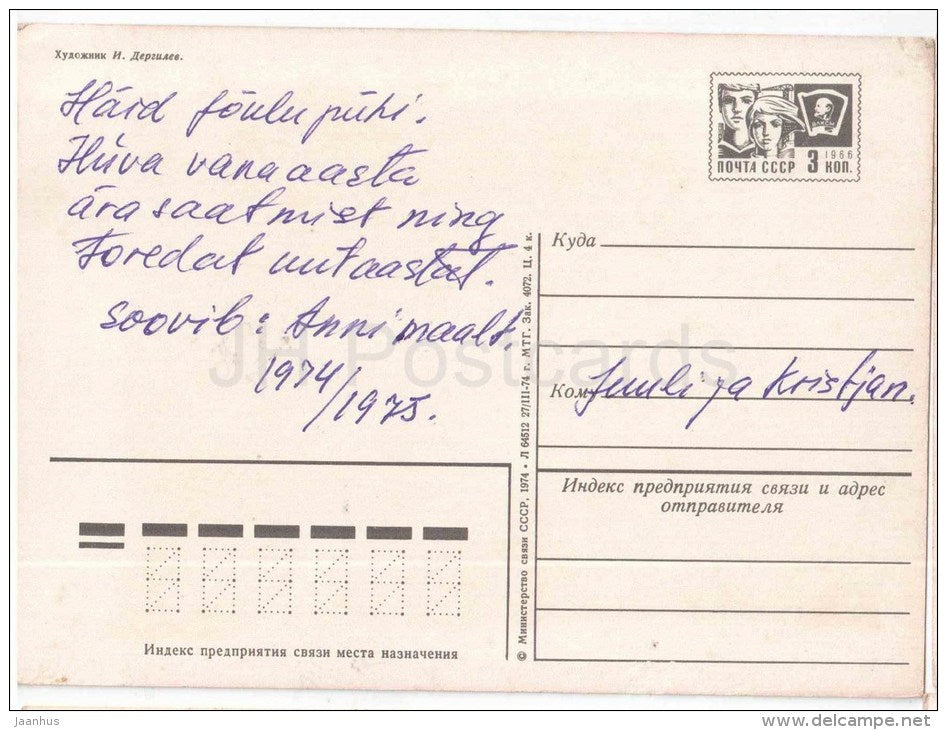 Художник И. Дергилев.
Häid jõulupühi.
Hüva vanaaasta
ärasaatmist ning
toredat uutaastat.
soovib: Anni maalt.
1974/1975.
ПОЧТА СССР 3 КОП.
1966
Куда
Кому
Juuli ja Kristjan.
Индекс предприятия связи и адрес
отправителя
© Министерство связи СССР, 1974 • Л 64512 27/III-74 г. МТГ. Зак. 4072. Ц. 4 к.
Индекс предприятия связи места назначения
JH Postcards
jaanhus
www.delcampe.net